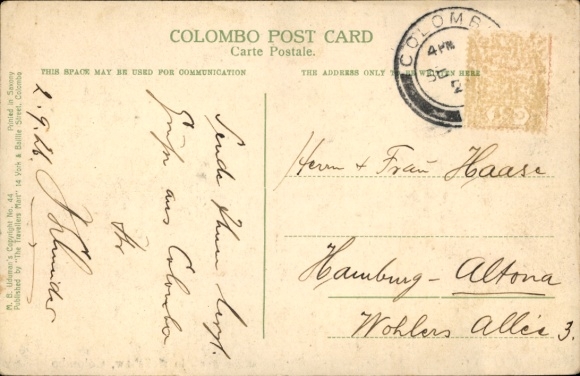 COLOMBO POST CARD
Carte Postale.
THIS SPACE MAY BE USED FOR COMMUNICATION
THE ADDRESS ONLY TO BE WRITTEN HERE
COLOMB
4 PM
2
M. B. Uduman's Copyright No. 44 Printed in Saxony
Published by "The Travellers Mart" 14 York & Baillie Street, Colombo
2.9.26.
Sende Ihnen herzl.
Grüße aus Colombo
Ihr
Schneider
Herrn & Frau Haase
Hamburg-Altona
Wohlers Allée 3.